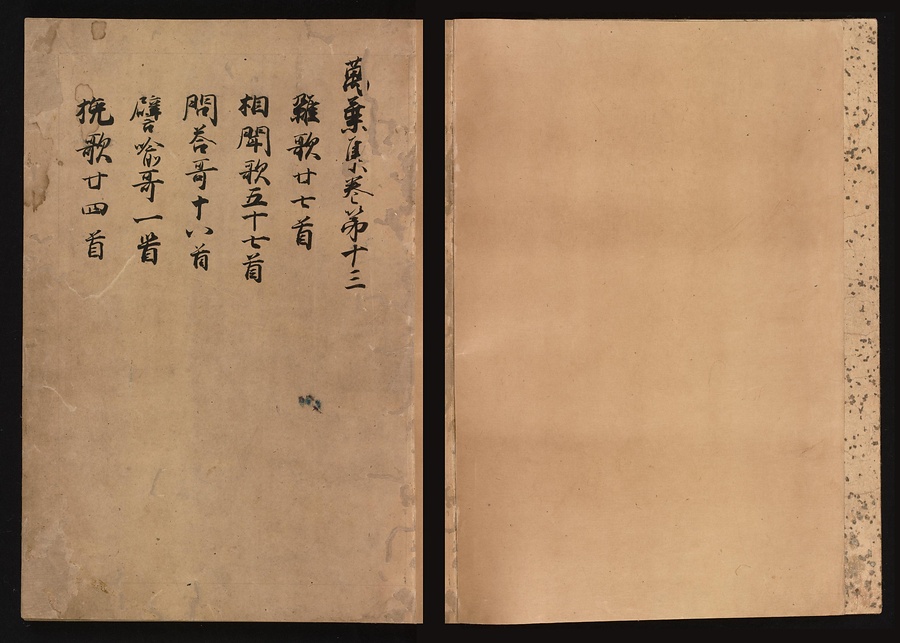 萬葉集卷第十三
雜歌廿七首
相聞歌五十七首
問荅哥十八首
譬喩哥一首
挽歌廿四首